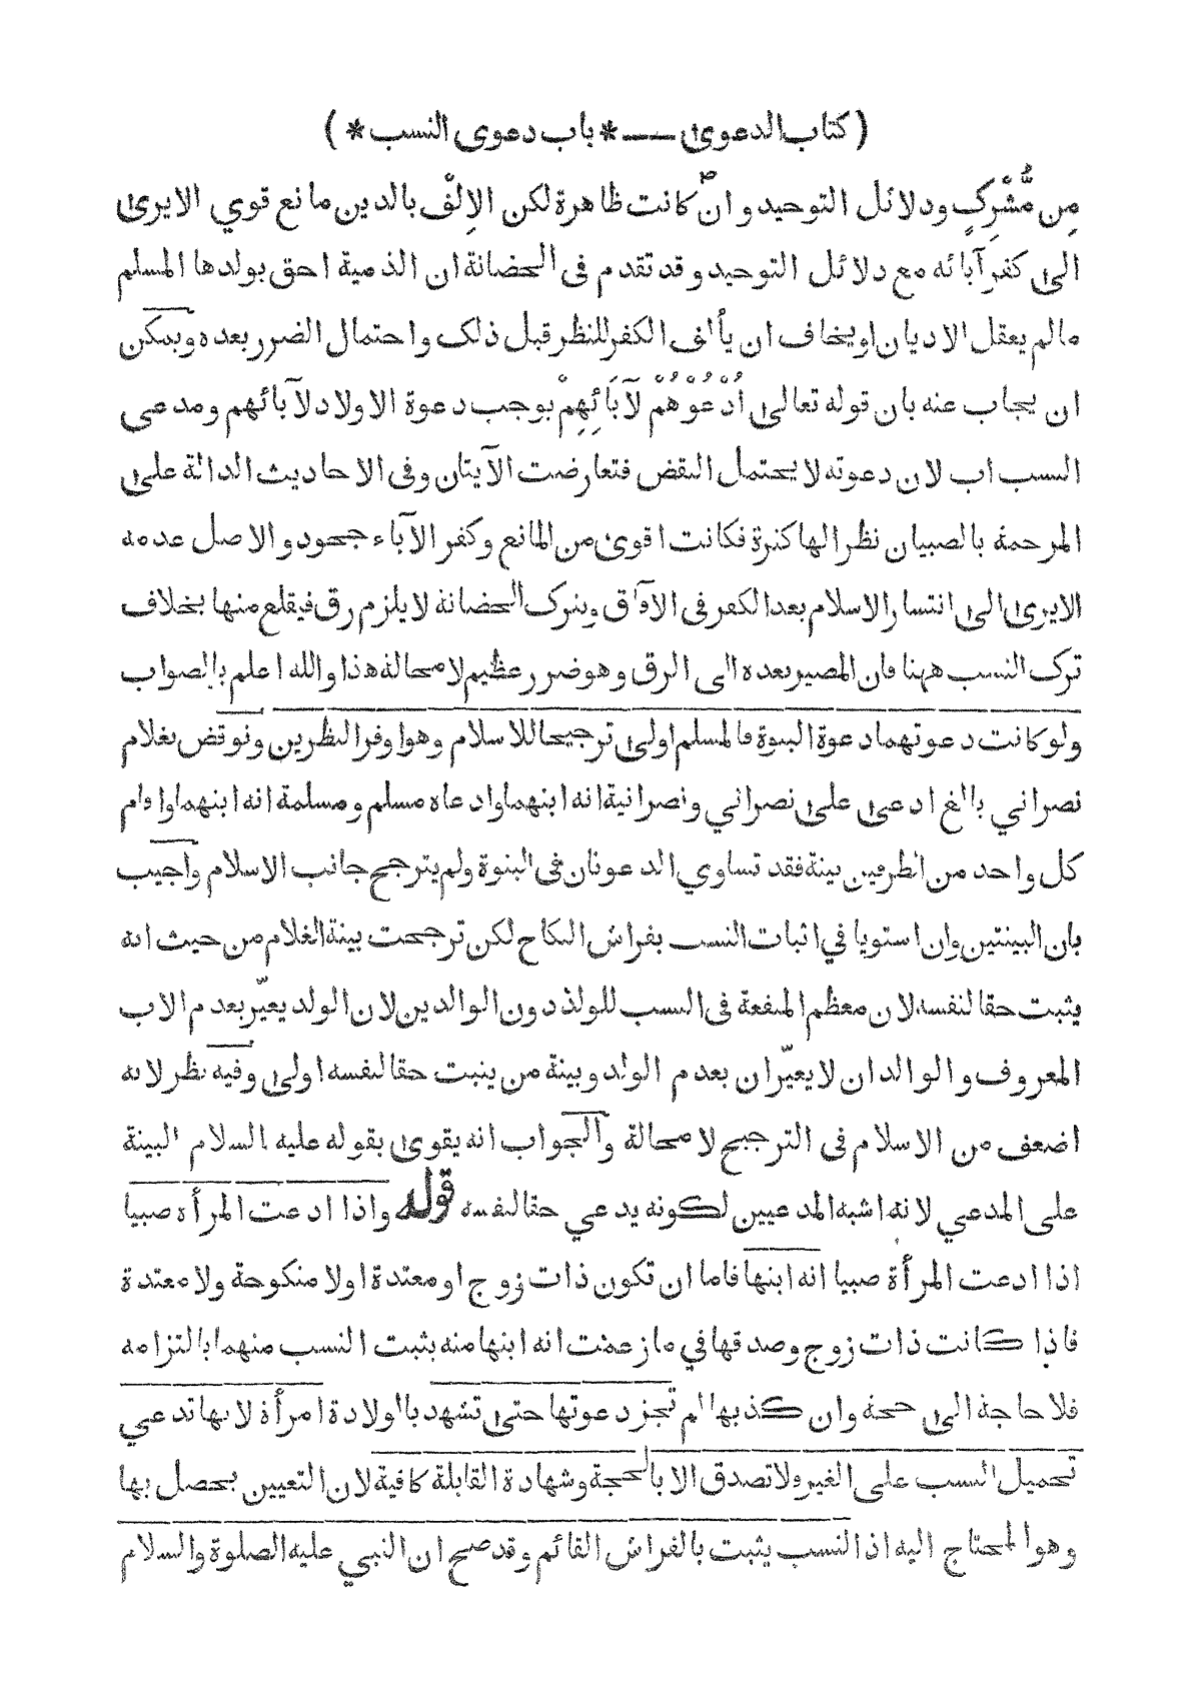 ( كتاب الدعوى — * باب دعوى النسب * )
مِن مُّشْرِكٍ ودلائل التوحيد وان كانت ظاهرة لكن الاِلفْ بالدين مانع قوي الايرى
الى كفر آبائه مع دلائل التوحيد وقد تقدم فى الحضانة ان الذمية احق بولدها المسلم
مالم يعقل الاديان او يخاف ان يألف الكفر للنظر قبل ذلك واحتمال الضرر بعده ويمكن
ان يجاب عنه بان قوله تعالى اُدْعُوْهُمْ لآبَائِهِمْ يوجب دعوة الاولاد لآبائهم ومدعى
النسب اب لان دعوته لا يحتمل النقض فتعارضت الآيتان وفى الاحاديث الدالة على
المرحمة بالصبيان نظرا لها كثرة فكانت اقوى من المانع وكفر الآباء جحود والاصل عدمه
الايرى الى انتشار الاسلام بعد الكفر فى الآفاق ويترك الحضانة لا يلزم رق فيقلع منها بخلاف
ترك النسب ههنا فان المصير بعده الى الرق وهو ضرر عظيم لا محالة هذا والله اعلم بالصواب
ولو كانت دعوتهما دعوة البنوة فالمسلم اولى ترجيحا للاسلام وهو اوفر النظرين ونوقض بغلام
نصراني بالغ ادعى على نصراني ونصرانية انه ابنهما وادعاه مسلم ومسلمة انه ابنهما واقام
كل واحد من الطرفين بينة فقد تساوي الدعوتان فى البنوة ولم يترجح جانب الاسلام واجيب
بان البينتين وان استويا في اثبات النسب بفراش النكاح لكن ترجحت بينة الغلام من حيث انه
يثبت حقا لنفسه لان معظم المنفعة فى النسب للولد دون الوالدين لان الولد يعيّر بعدم الاب
المعروف والوالدان لا يعيّران بعدم الولد وبينة من يثبت حقا لنفسه اولى وفيه نظر لانه
اضعف من الاسلام فى الترجيح لا محالة والجواب انه يقوى بقوله عليه السلام البينة
على المدعي لانه اشبه المدعيين لكونه يدعي حقا لنفسه قوله واذا ادعت المرأة صبيا
اذا ادعت المرأة صبيا انه ابنها فاما ان تكون ذات زوج او معتدة اولا منكوحة ولا معتدة
فاذا كانت ذات زوج وصدقها في ما زعمت انه ابنها منه يثبت النسب منهما بالتزامه
فلا حاجة الى حجة وان كذبها لم تجز دعوتها حتى تشهد بالولادة امرأة لانها تدعي
تحميل النسب على الغير ولا تصدق الا بالحجة وشهادة القابلة كافية لان التعيين يحصل بها
وهو المحتاج اليه اذ النسب يثبت بالفراش القائم وقد صح ان النبي عليه الصلوة والسلام